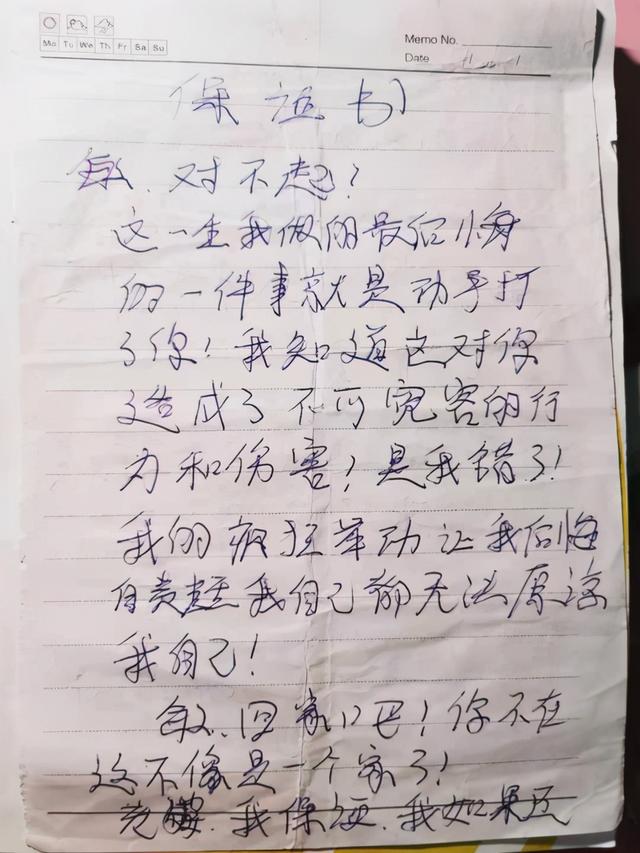 Mo Tu We Th Fr Sa Su
Memo No.
Date
保证书
敏、对不起?
这一生我做的最后悔
的一件事就是动手打
了你！我知道这对你
造成了不可宽容的行
为和伤害！是我错了!
我的疯狂举动让我后悔
自责 我自己都无法原谅
我自己！
敏、回家吧！你不在
这不像是一个家了!
我保证、我如果还